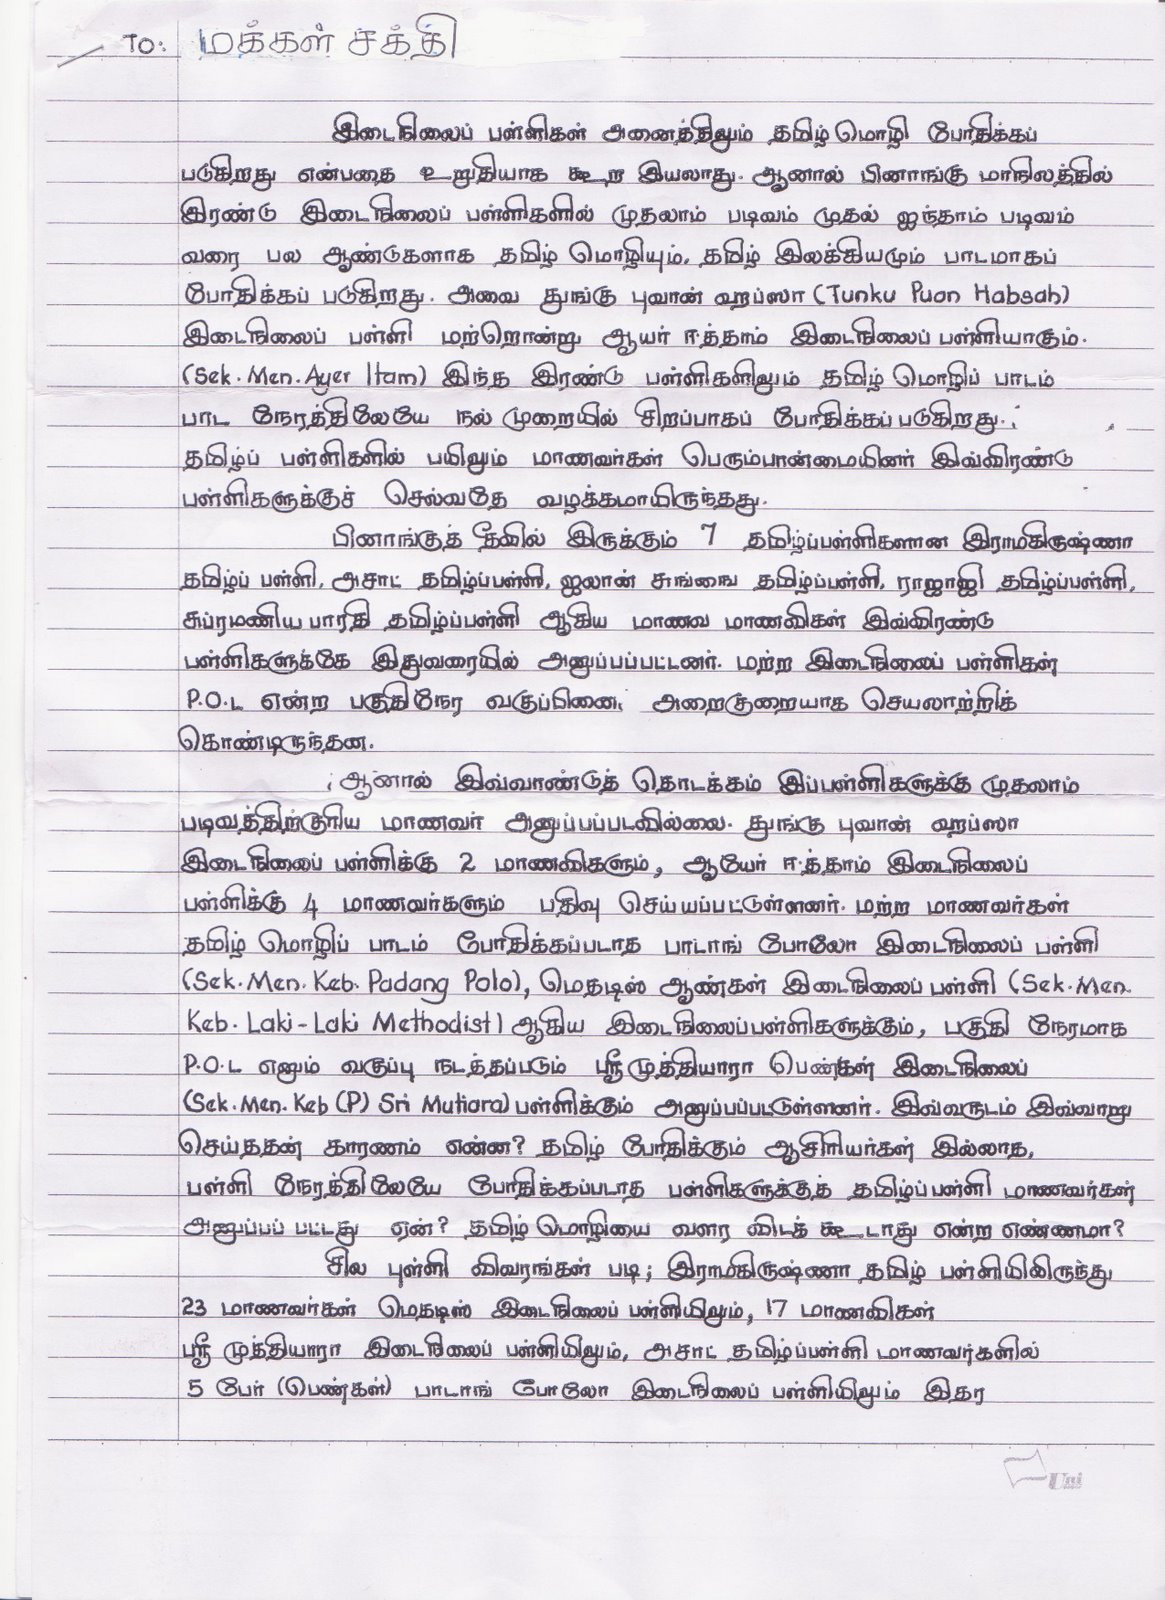 TO: மக்கள் சக்தி
இடைநிலைப் பள்ளிகள் அனைத்திலும் தமிழ் மொழி போதிக்கப்
படுகிறது என்பதை உறுதியாக கூற இயலாது. ஆனால் பினாங்கு மாநிலத்தில்
இரண்டு இடைநிலைப் பள்ளிகளில் முதலாம் படிவம் முதல் ஐந்தாம் படிவம்
வரை பல ஆண்டுகளாக தமிழ் மொழியும், தமிழ் இலக்கியமும் பாடமாகப்
போதிக்கப் படுகிறது. அவை துங்கு புவான் ஹப்ஸா (Tunku Puan Habsah)
இடைநிலைப் பள்ளி மற்றொன்று ஆயர் ஈத்தாம் இடைநிலைப் பள்ளியாகும்.
(Sek. Men. Ayer Itam) இந்த இரண்டு பள்ளிகளிலும் தமிழ் மொழிப் பாடம்
பாட நேரத்திலேயே நல் முறையில் சிறப்பாகப் போதிக்கப் படுகிறது.
தமிழ்ப் பள்ளிகளில் பயிலும் மாணவர்கள் பெரும்பான்மையினர் இவ்விரண்டு
பள்ளிகளுக்குச் செல்வதே வழக்கமாயிருந்தது.
பினாங்குத் தீவில் இருக்கும் 7 தமிழ்ப்பள்ளிகளான இராமகிருஷ்ணா
தமிழ்ப் பள்ளி, அசாட் தமிழ்ப்பள்ளி, ஜலான் சுங்கை தமிழ்ப்பள்ளி, ராஜாஜி தமிழ்ப்பள்ளி,
சுப்ரமணிய பாரதி தமிழ்ப்பள்ளி ஆகிய மாணவ மாணவிகள் இவ்விரண்டு
பள்ளிகளுக்கே இதுவரையில் அனுப்பப்பட்டனர். மற்ற இடைநிலைப் பள்ளிகள்
P.O.L என்ற பகுதிநேர வகுப்பினை அறைகுறையாக செயலாற்றிக்
கொண்டிருந்தன.
ஆனால் இவ்வாண்டுத் தொடக்கம் இப்பள்ளிகளுக்கு முதலாம்
படிவத்திற்குரிய மாணவர் அனுப்பப்படவில்லை. துங்கு புவான் ஹப்ஸா
இடைநிலைப் பள்ளிக்கு 2 மாணவிகளும், ஆயேர் ஈத்தாம் இடைநிலைப்
பள்ளிக்கு 4 மாணவர்களும் பதிவு செய்யப்பட்டுள்ளனர். மற்ற மாணவர்கள்
தமிழ் மொழிப் பாடம் போதிக்கப்படாத பாடாங் போலோ இடைநிலைப் பள்ளி
(Sek. Men. Keb. Padang Polo), மெதடிஸ் ஆண்கள் இடைநிலைப் பள்ளி (Sek. Men.
Keb. Laki-Laki Methodist) ஆகிய இடைநிலைப்பள்ளிகளுக்கும், பகுதி நேரமாக
P.O.L எனும் வகுப்பு நடத்தப்படும் ஸ்ரீ முத்தியாரா பெண்கள் இடைநிலைப்
(Sek. Men. Keb (P) Sri Mutiara) பள்ளிக்கும் அனுப்பப்பட்டுள்ளனர். இவ்வருடம் இவ்வாறு
செய்ததன் காரணம் என்ன? தமிழ் போதிக்கும் ஆசிரியர்கள் இல்லாத,
பள்ளி நேரத்திலேயே போதிக்கப்படாத பள்ளிகளுக்குத் தமிழ்ப் பள்ளி மாணவர்கள்
அனுப்பப் பட்டது ஏன்? தமிழ் மொழியை வளர விடக் கூடாது என்ற எண்ணமா?
சில புள்ளி விவரங்கள் படி; இராமகிருஷ்ணா தமிழ் பள்ளியிலிருந்து
23 மாணவர்கள் மெதடிஸ் இடைநிலைப் பள்ளியிலும், 17 மாணவிகள்
ஸ்ரீ முத்தியாரா இடைநிலைப் பள்ளியிலும், அசாட் தமிழ்ப்பள்ளி மாணவர்களில்
5 பேர் (பெண்கள்) பாடாங் போலோ இடைநிலைப் பள்ளியிலும் இதர
Uni